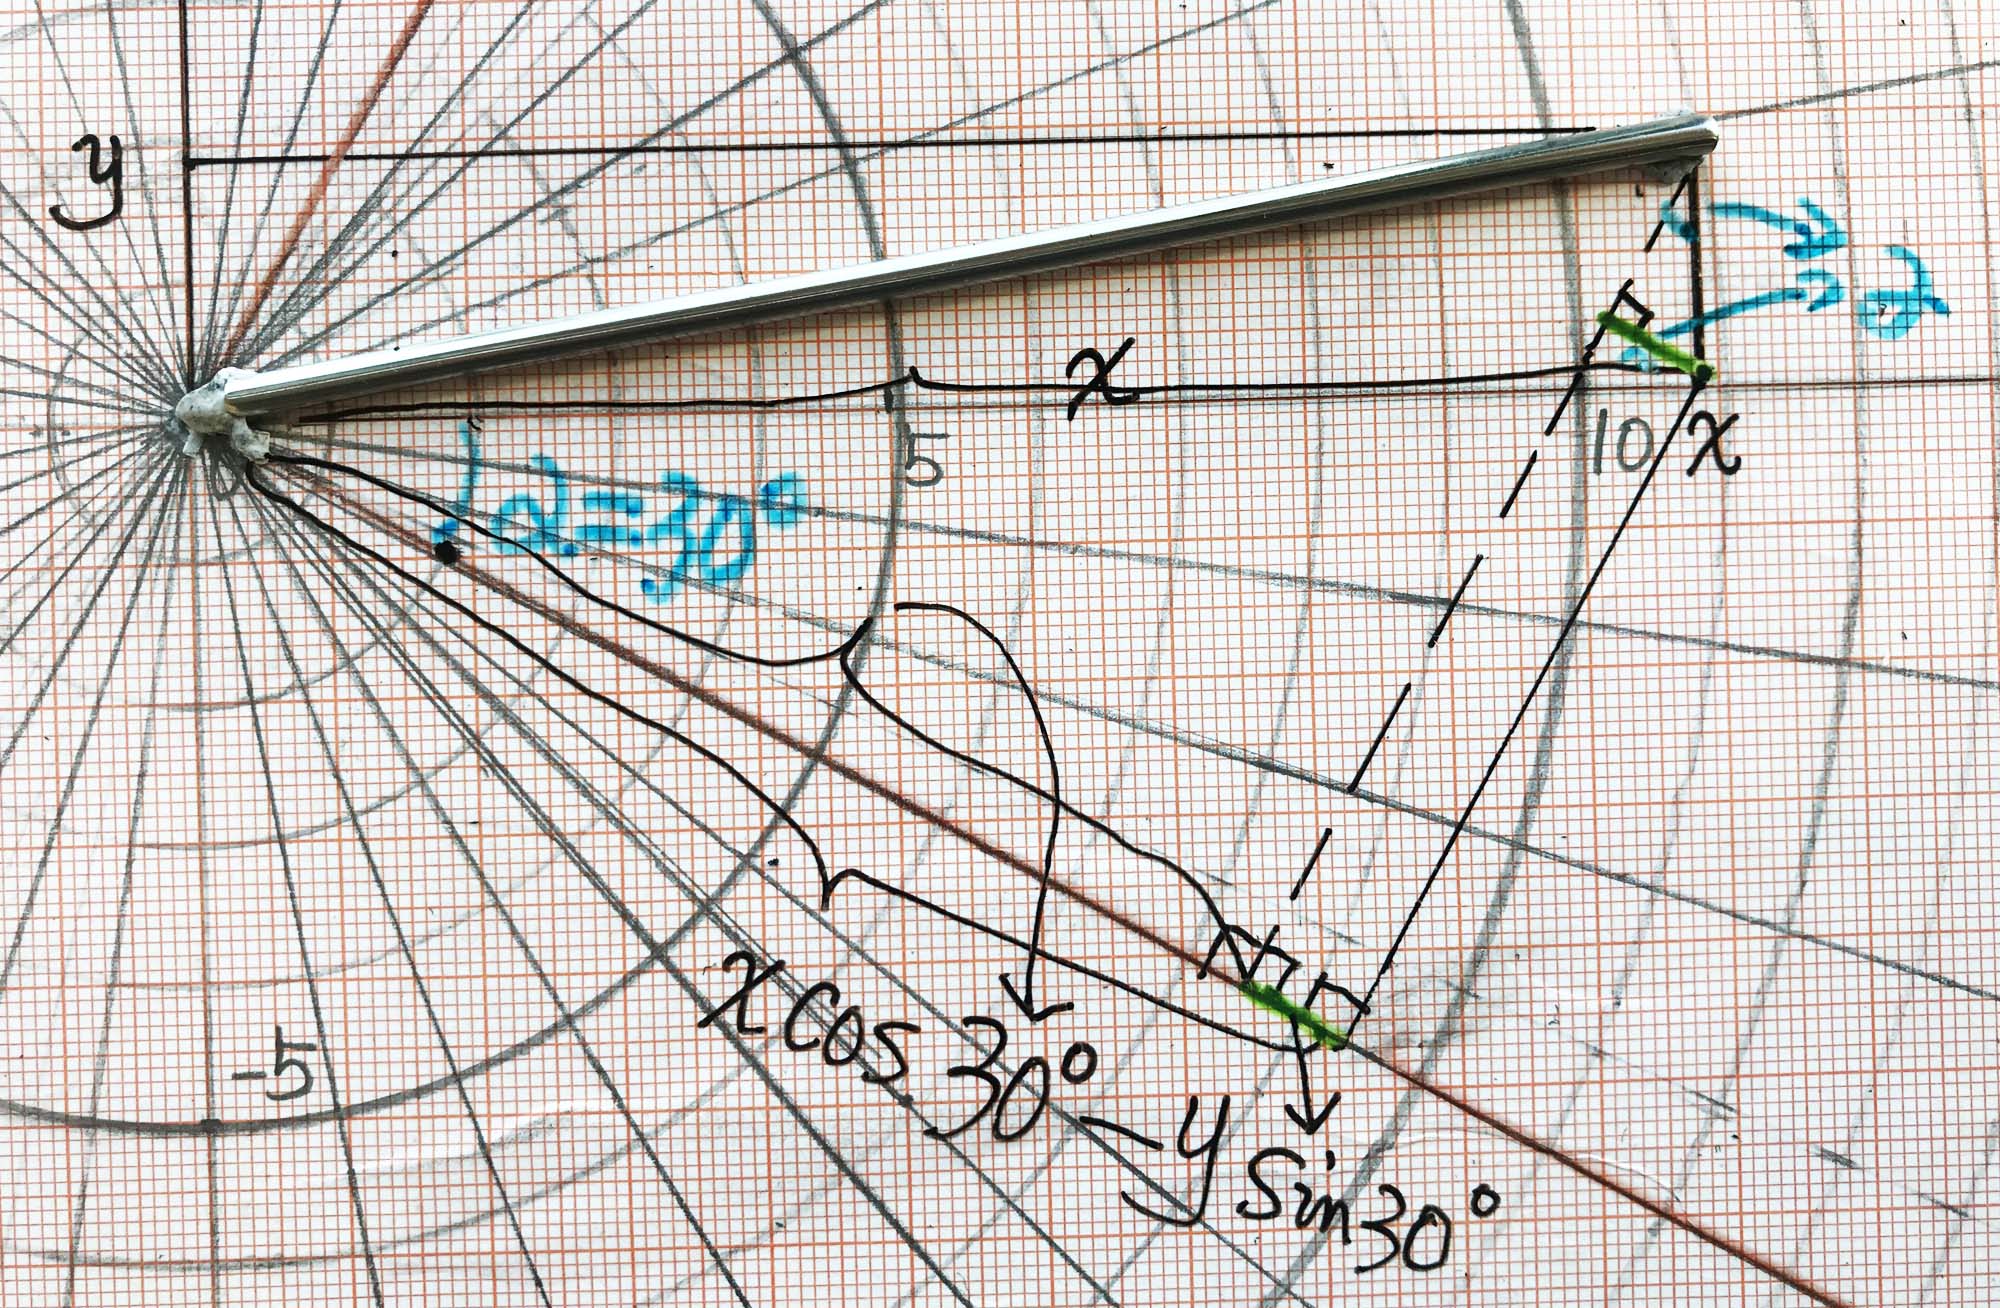 y
x
5
10 x
α
α=30°
0
-5
x cos 30° - y sin 30°